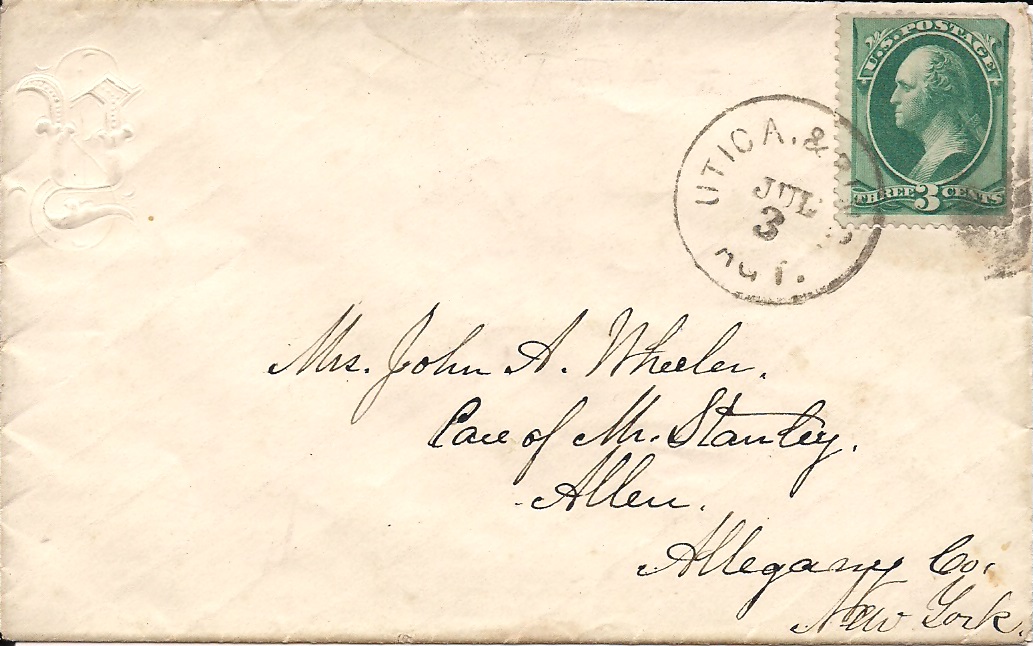 U.S. POSTAGE
THREE 3 CENTS
UTICA. &
JUL
3
AGT.
Mrs. John A. Wheeler.
Care of Mr. Stanley.
Allen.
Allegany Co.
New York.